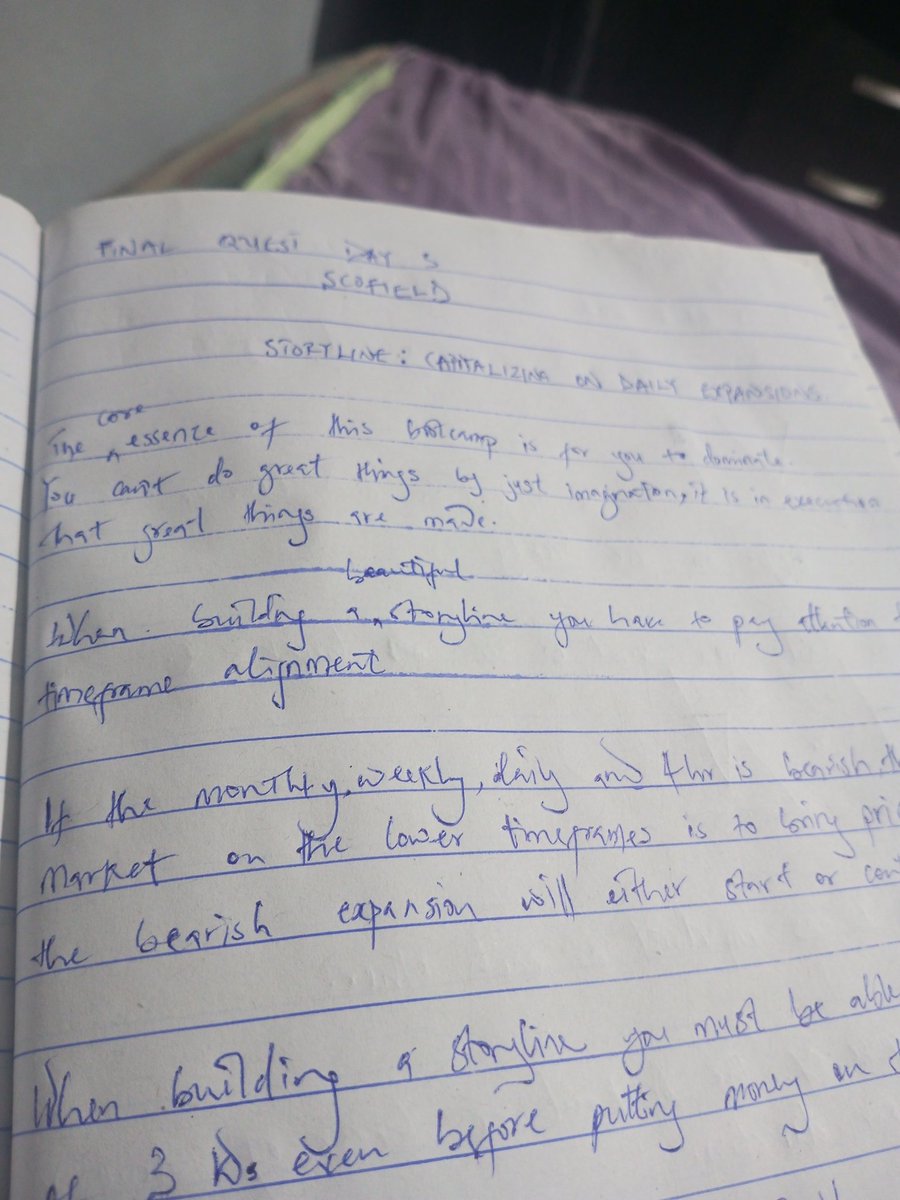 FINAL QUEST DAY 3
SCOFIELD
STORYLINE: CAPITALIZING ON DAILY EXPANSIONS.
The core essence of this bootcamp is for you to dominate.
You can't do great things by just imagination, it is in execution
that great things are made.
beautiful
When building a storyline you have to pay attention
timeframe alignment
If the monthly, weekly, daily and 4hr is bearish, th
market on the lower timeframes is to bring pri
the bearish expansion will either start or con
When building a storyline you must be able
3 Ds even before putting money on